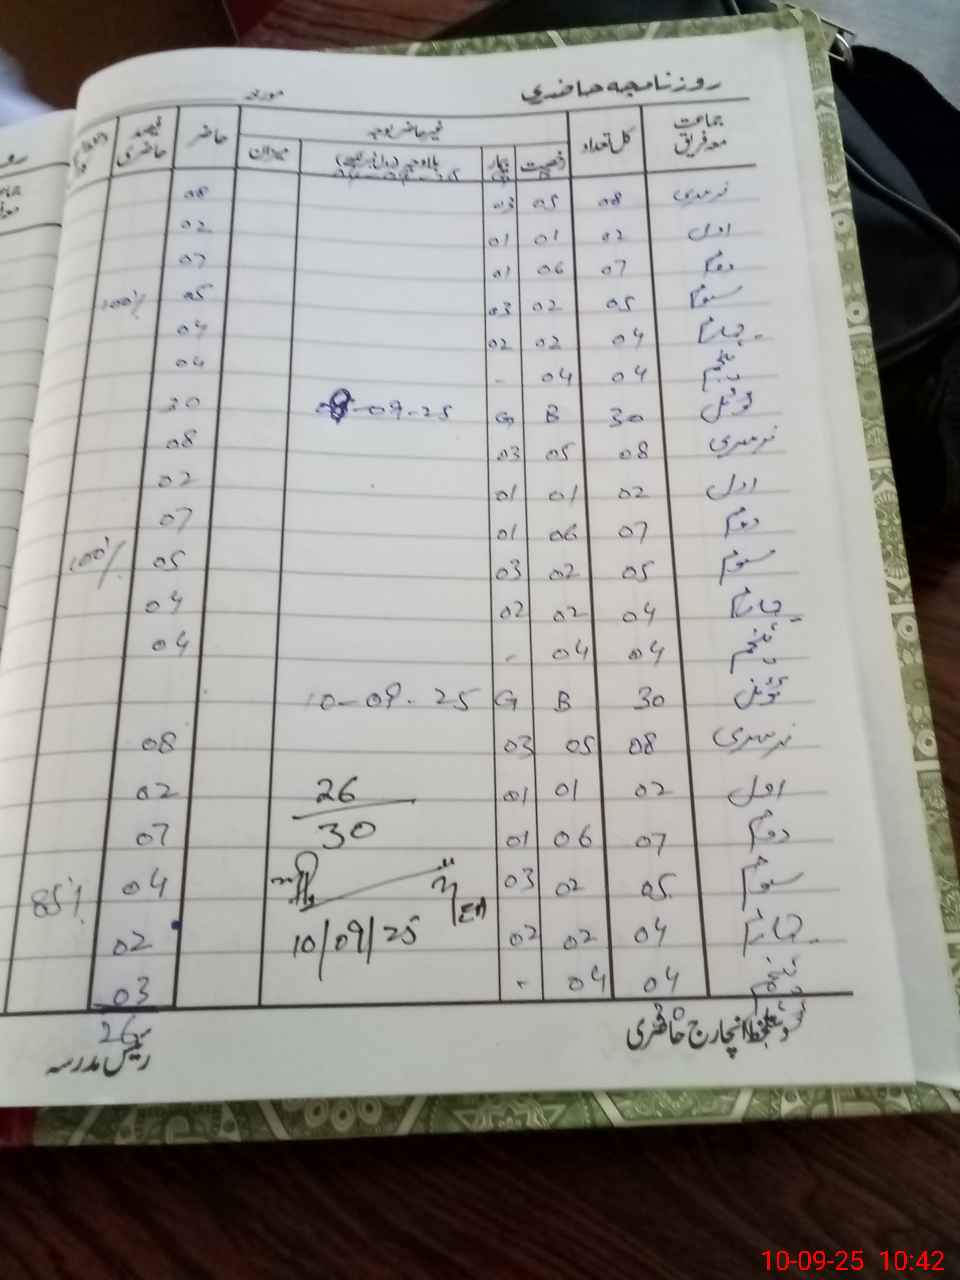 روزنامچہ حاضری مورخہ
جماعت معہ فریق کل تعداد غیر حاضر بوجہ حاضر فیصد حاضری
رخصت بیمار بلاوجہ میزان
نرسری 08 05 03 08
اول 02 01 01 02
دوم 07 06 01 07
سوم 05 02 03 05 100%
چہارم 04 02 02 04
پنجم 04 04 - 04
ٹوٹل 30 B G -09-25 30
نرسری 08 05 03 08
اول 02 01 01 02
دوم 07 06 01 07
سوم 05 02 03 05 100%
چہارم 04 02 02 04
پنجم 04 04 - 04
ٹوٹل 30 B G 10-09-25
نرسری 08 05 03 08
اول 02 01 01 26 02
دوم 07 06 01 30 07
سوم 05 02 03 04 85%
چہارم 04 02 02 10/09/25 02
پنجم 04 04 - 03
دستخط انچارج حاضری 26
رئیس مدرسہ
10-09-25 10:42